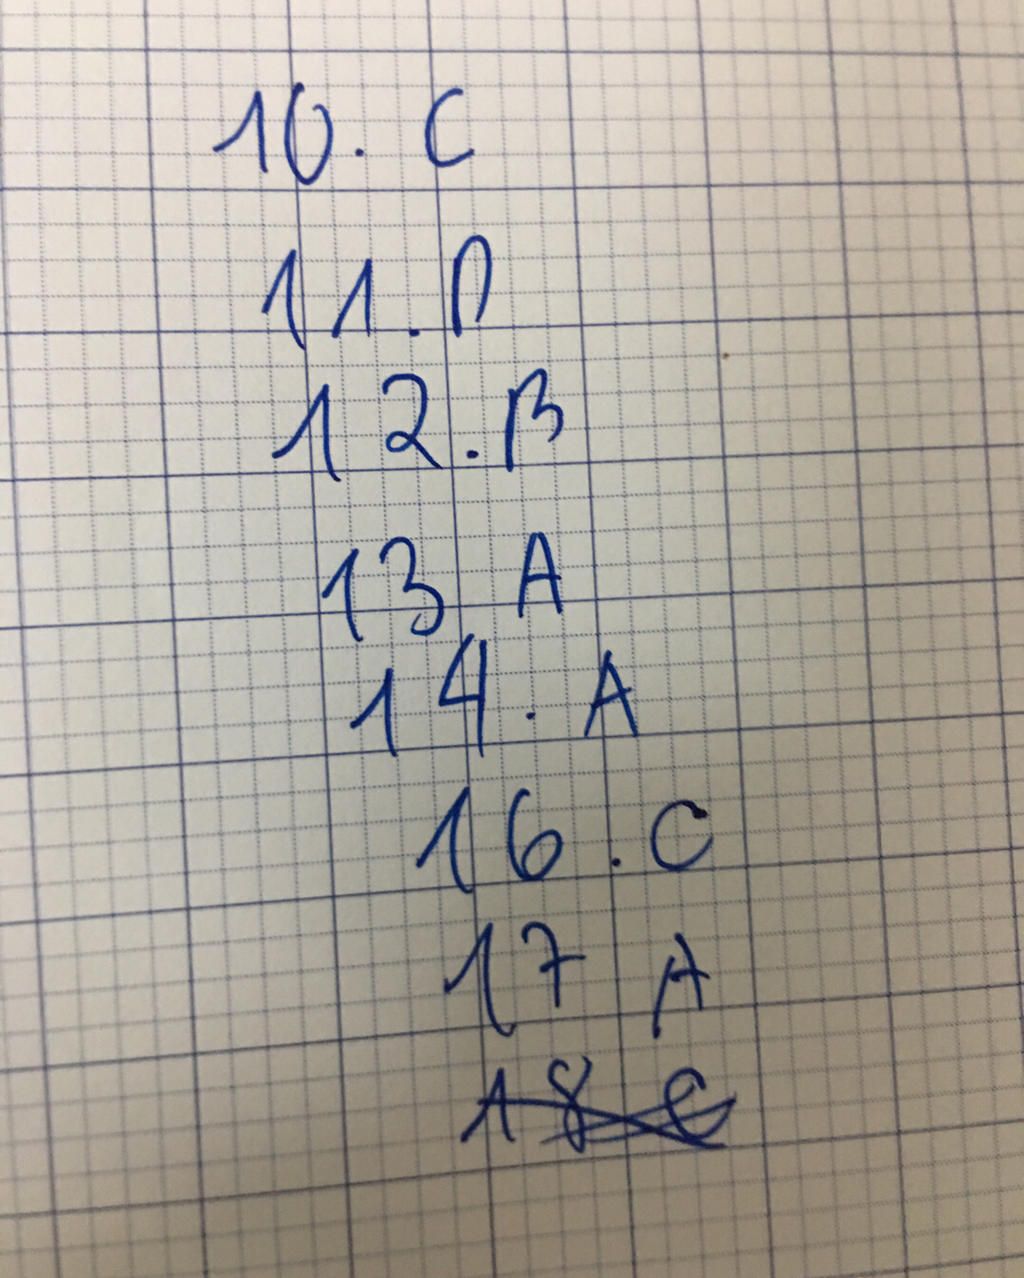 10. C
11. D
12. B
13 A
14. A
16. C
17 A
18 C